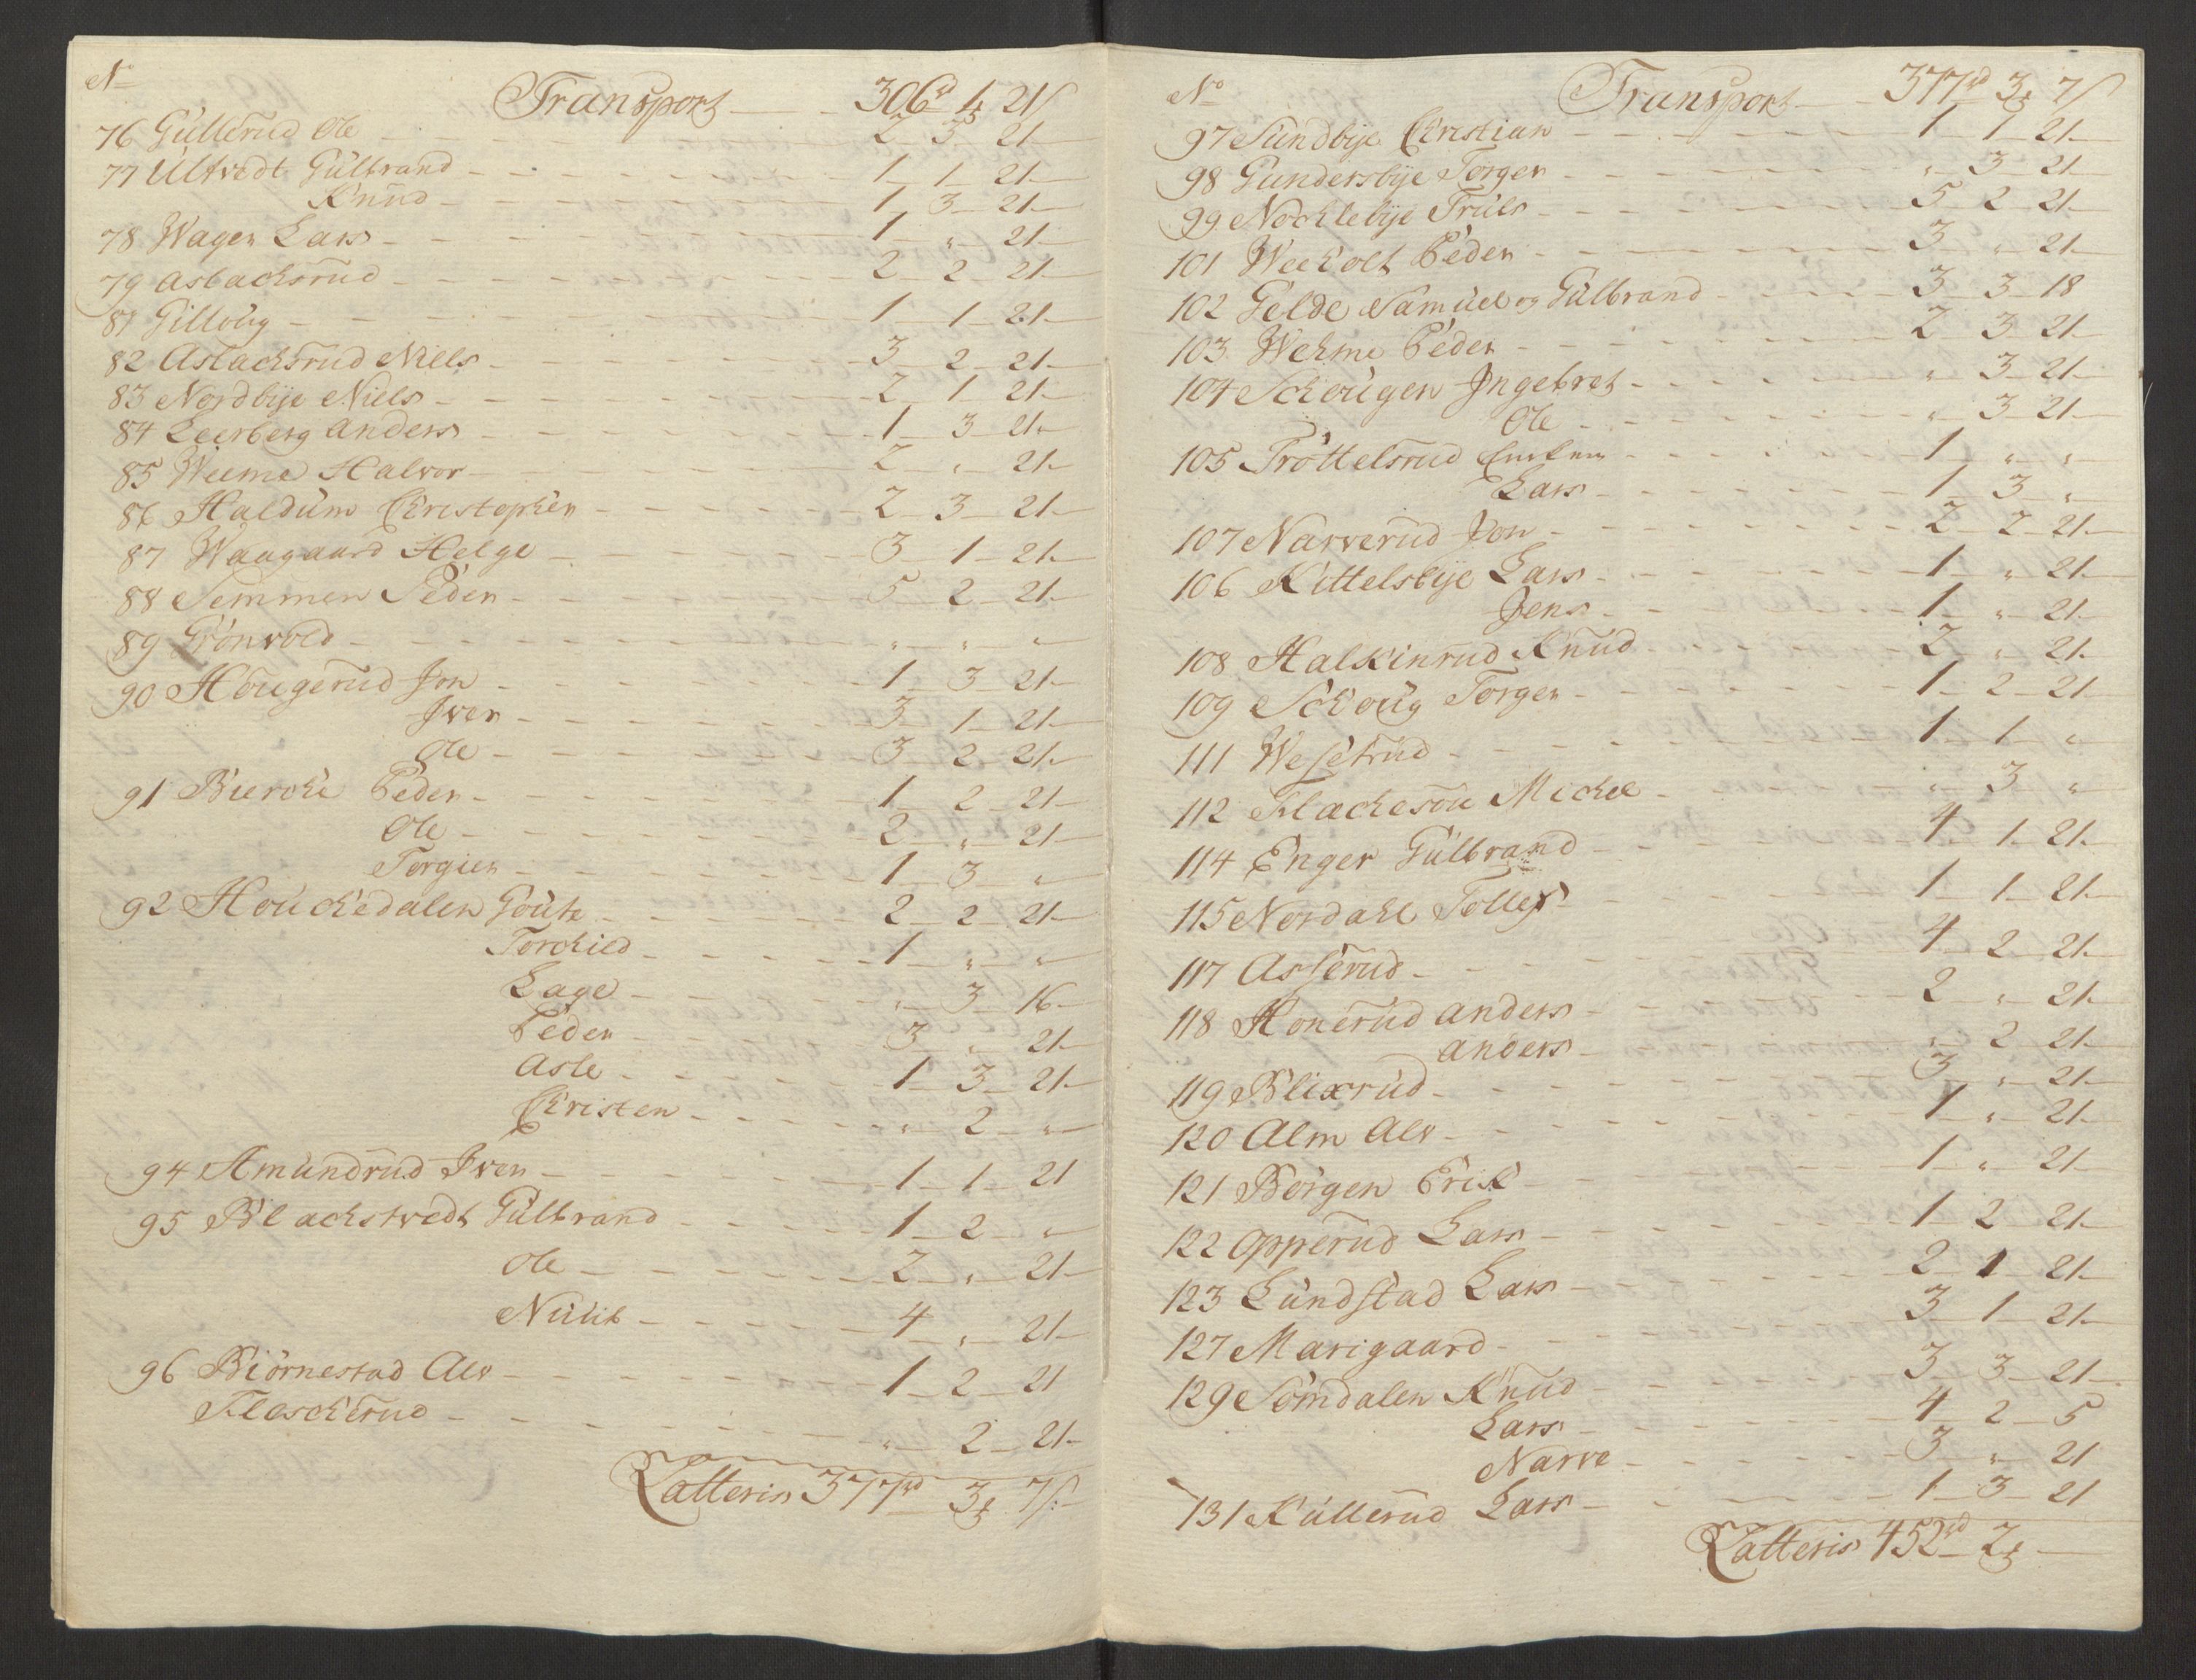 No
Transport — 306rd 1 21s
76 Gullerud Ole — 2 3 21
77 Ultvedt Gulbrand — 1 1 21
Knud — 1 3 21
78 Wager Lars — 1 " 21
79 Asbachsrud — 2 2 21
81 Gilloug — 1 1 21
82 Aslachsrud Niels — 3 2 21
83 Nordbije Niels — 2 1 21
84 Leerberg Anders — 1 3 21
85 Weeme Halvor — 2 " 21
86 Haldum Christopher — 2 3 21
87 Waagaard Helge — 3 1 21
88 Semmen Peder — 5 2 21
89 Grönvold — " " "
90 Hougerud Jon — 1 3 21
Jver — 3 1 21
Ole — 3 2 21
91 Bierche Peder — 1 2 21
Ole — 2 " 21
Torgier — 1 3 "
92 Houchedalen Goute — 2 2 21
Torchild — 1 " "
Lage — " 3 16
Peder — 3 " 21
Asle — 1 3 21
Christen — " 2 "
94 Amundrud Jver — 1 1 21
95 Blachstvedt Gulbrand — 1 2 "
Ole — 2 " 21
— 4 " 21
96 Biörnestad Alv — 1 2 21
Flescherud — " 2 21
Latteris 377rd 3 7s
No
Transport — 377rd 3 7s
97 Sundbije Christian — 1 1 21
98 Gundersbije Torger — " 3 21
99 Nochlebije Truls — 5 2 21
101 Weeholt Peder — 3 " 21
102 Gelde Samuel og Gulbrand — 3 3 18
103 Wehme Peder — 2 3 21
104 Schougen Jngebret — " 3 21
Ole — " 3 21
105 Tröttelsrud — 1 " "
Lars — 1 3 "
107 Narverud Jon — 2 2 21
106 Kittelsbije Lars — 1 " 21
Jens — 1 " 21
108 Halkinrud Knud — 2 " 21
109 Schoug Torger — 1 2 21
111 Wesetrud — 1 1 "
112 Flachesöe Michel — " 3 "
114 Enger Gulbrand — 4 1 21
115 Nordahl Tollef — 1 1 21
117 Asserud — 4 2 21
118 Honerud Anders — 2 " 21
Anders — " 2 21
119 Blixrud — 3 " 21
120 Alm Alv — 1 " 21
121 Börgen Erik — 1 " 21
122 Opperud Lars — 1 2 21
123 Lundstad Lars — 2 1 21
127 Marigaard — 3 1 21
129 Somdalen Knud — 3 3 21
Lars — 4 2 5
Narve — 3 " 21
131 Kullerud Lars — 1 3 21
Latteris 452rd 2 —